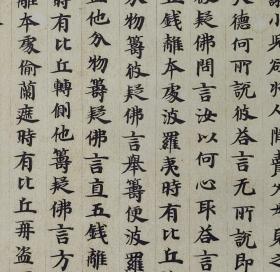 大德何所說彼答言无所說即
彼疑佛問言汝以何心取答言
五錢離本處波羅夷時有比丘
分物籌彼疑佛言舉籌便波羅
五他分物籌疑佛言直五錢離
時有比丘轉側他籌疑佛言方
離本處偷蘭遮時有比丘毋盜